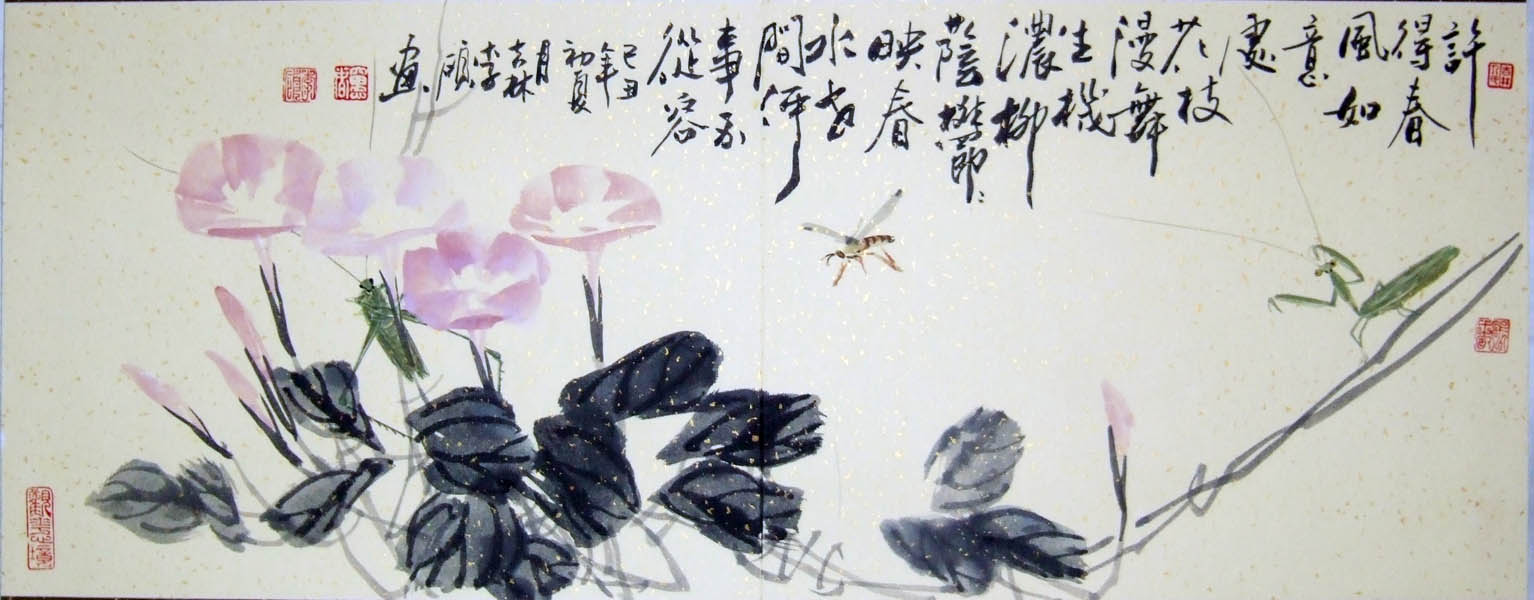 許
得春
風如
意
處
花枝
漫舞
生機
濃柳
蔭
映春
水世
間何
事不
從容
己丑年
初夏
月
吉林
李
碩
畫